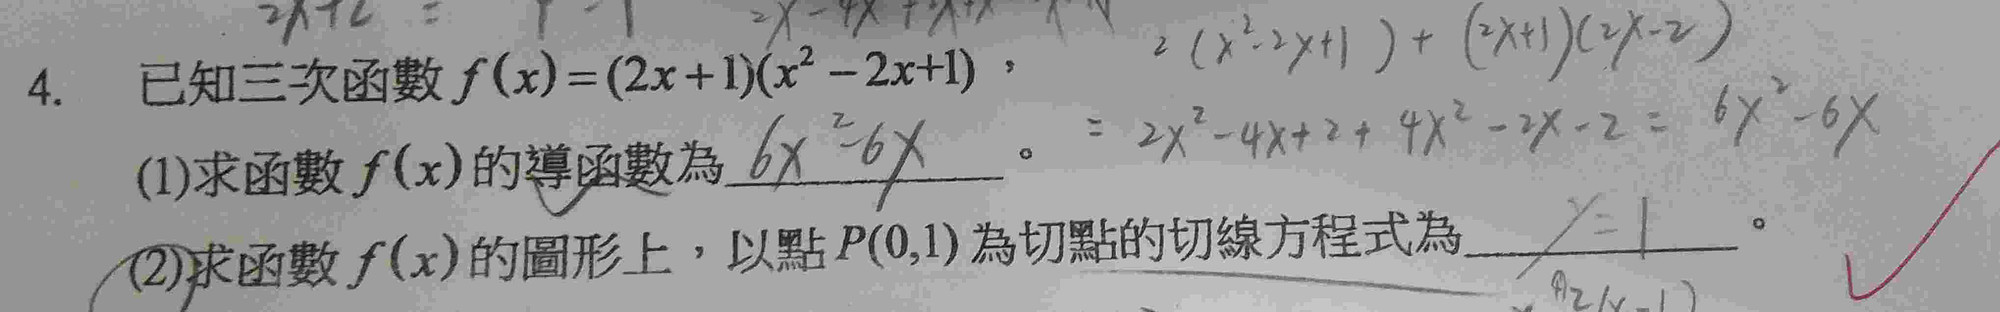 4. 已知三次函數 f(x)=(2x+1)(x²-2x+1)，
2(x²-2x+1)+(2x+1)(2x-2)
= 2x²-4x+2+4x²-2x-2= 6x²-6x
(1)求函數 f(x)的導函數為 6x²-6x 。
(2)求函數 f(x)的圖形上，以點 P(0,1) 為切點的切線方程式為 y=1 。